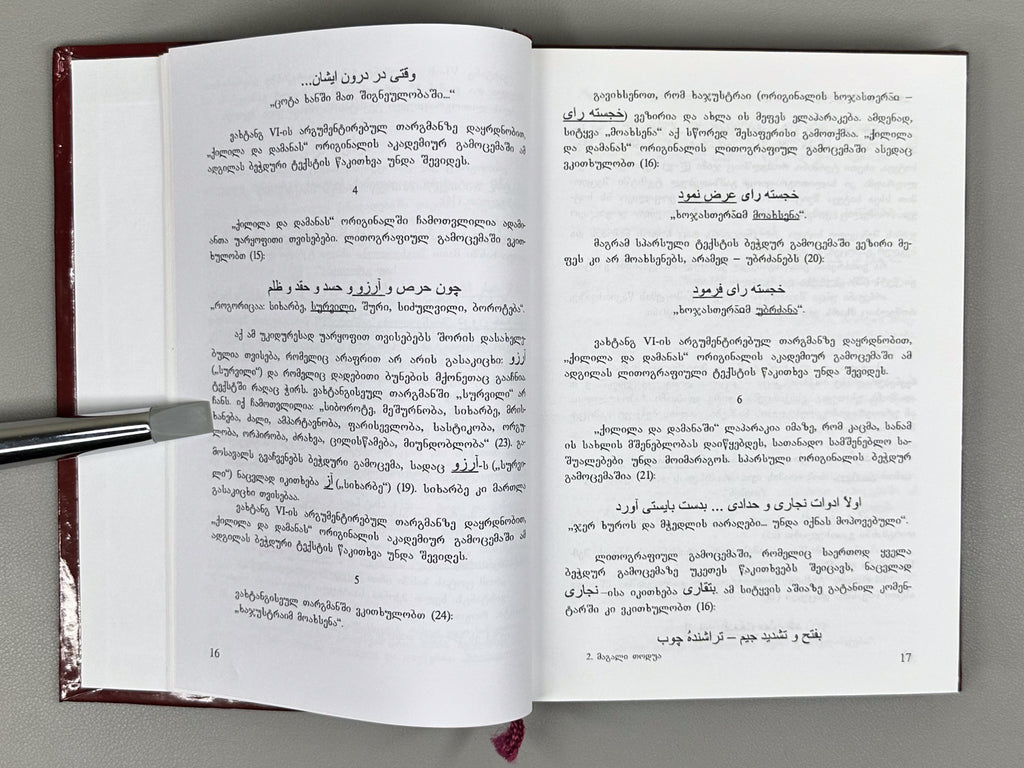 وقتی در درون ایشان...
„ცოტა ხანში მათ შიგნეულობაში...“
ვახტანგ VI-ის არგუმენტირებულ თარგმანზე დაყრდნობით,
„ქილილა და დამანას“ ორიგინალის აკადემიურ გამოცემაში ამ
ადგილას ბეჭდური ტექსტის წაკითხვა უნდა შევიდეს.
4
„ქილილა და დამანას“ ორიგინალში ჩამოთვლილია ადამი-
ანთა უარყოფითი თვისებები. ლითოგრაფიულ გამოცემაში ვკით-
ხულობთ (15):
چون حرص و آرزو و حسد و حقد و ظلم
„როგორიცაა: სიხარბე, სურვილი, შური, სიძულვილი, ბოროტება“.
აქ ამ უკიდურესად უარყოფით თვისებებს შორის დასახელე-
ბულია თვისება, რომელიც არაფრით არ არის გასაკიცხი: آرزو
(„სურვილი“) და რომელიც დადებითი ბუნების მქონეთაც გააჩნია
ტექსტში რაღაც ჭირს. ვახტანგისეულ თარგმანში „სურვილი“ არ
ჩანს. იქ ჩამოთვლილია: „სიბოროტე, მეშურნობა, სიხარბე, მრის-
ხანება, ძალი, ამპარტავნობა, ფარისევლობა, სასტიკობა, ორგუ-
ლობა, ორპირობა, ძრახვა, ცილისწამება, მიუნდობლობა“ (23). გა-
მოსავალს გვაჩვენებს ბეჭდური გამოცემა, სადაც آرزو-ს („სურვი-
ლი“) ნაცვლად იკითხება آز („სიხარბე“) (19). სიხარბე კი მართლა
გასაკიცხი თვისებაა.
ვახტანგ VI-ის არგუმენტირებულ თარგმანზე დაყრდნობით,
„ქილილა და დამანას“ ორიგინალის აკადემიურ გამოცემაში ამ
ადგილას ბეჭდური ტექსტის წაკითხვა უნდა შევიდეს.
5
ვახტანგისეულ თარგმანში ვკითხულობთ (24):
„ხაჯუსტრაიმ მოახსენა“.
16
გავიხსენოთ, რომ ხაჯუსტრაი (ორიგინალის ხოჯასთერāი –
خجسته رای) ვეზირია და ახლა ის მეფეს ელაპარაკება. ამდენად,
სიტყვა „მოახსენა“ აქ სწორედ შესაფერისი გამოთქმაა. „ქილილა
და დამანას“ ორიგინალის ლითოგრაფიულ გამოცემაში ასედაც
ვკითხულობთ (16):
خجسته رای عرض نمود
„ხოჯასთერāიმ მოახსენა“.
მაგრამ სპარსული ტექსტის ბეჭდურ გამოცემაში ვეზირი მე-
ფეს კი არ მოახსენებს, არამედ – უბრძანებს (20):
خجسته رای فرمود
„ხოჯასთერāიმ უბრძანა“.
ვახტანგ VI-ის არგუმენტირებულ თარგმანზე დაყრდნობით,
„ქილილა და დამანას“ ორიგინალის აკადემიურ გამოცემაში ამ
ადგილას ლითოგრაფიული ტექსტის წაკითხვა უნდა შევიდეს.
6
„ქილილა და დამანაში“ ლაპარაკია იმაზე, რომ კაცმა, სანამ
ის სახლის მშენებლობას დაიწყებდეს, სათანადო სამშენებლო სა-
შუალებები უნდა მოიმარაგოს. სპარსული ორიგინალის ბეჭდურ
გამოცემაშია (21):
اولاً ادوات نجاری و حدادی ... بدست بایستی آورد
„ჯერ ხუროს და მჭედლის იარაღები... უნდა იქნას მოპოვებული“.
ლითოგრაფიულ გამოცემაში, რომელიც საერთოდ ყველა
ბეჭდურ გამოცემაზე უკეთეს წაკითხვებს შეიცავს, ნაცვლად
نجاری –ისა იკითხება بتقاری. ამ სიტყვის აშიაზე გატანილ კომენ-
ტარში კი ვკითხულობთ (16):
بفتح و تشدید جیم – تراشندهٔ چوب
2. მაგალი თოდუა
17